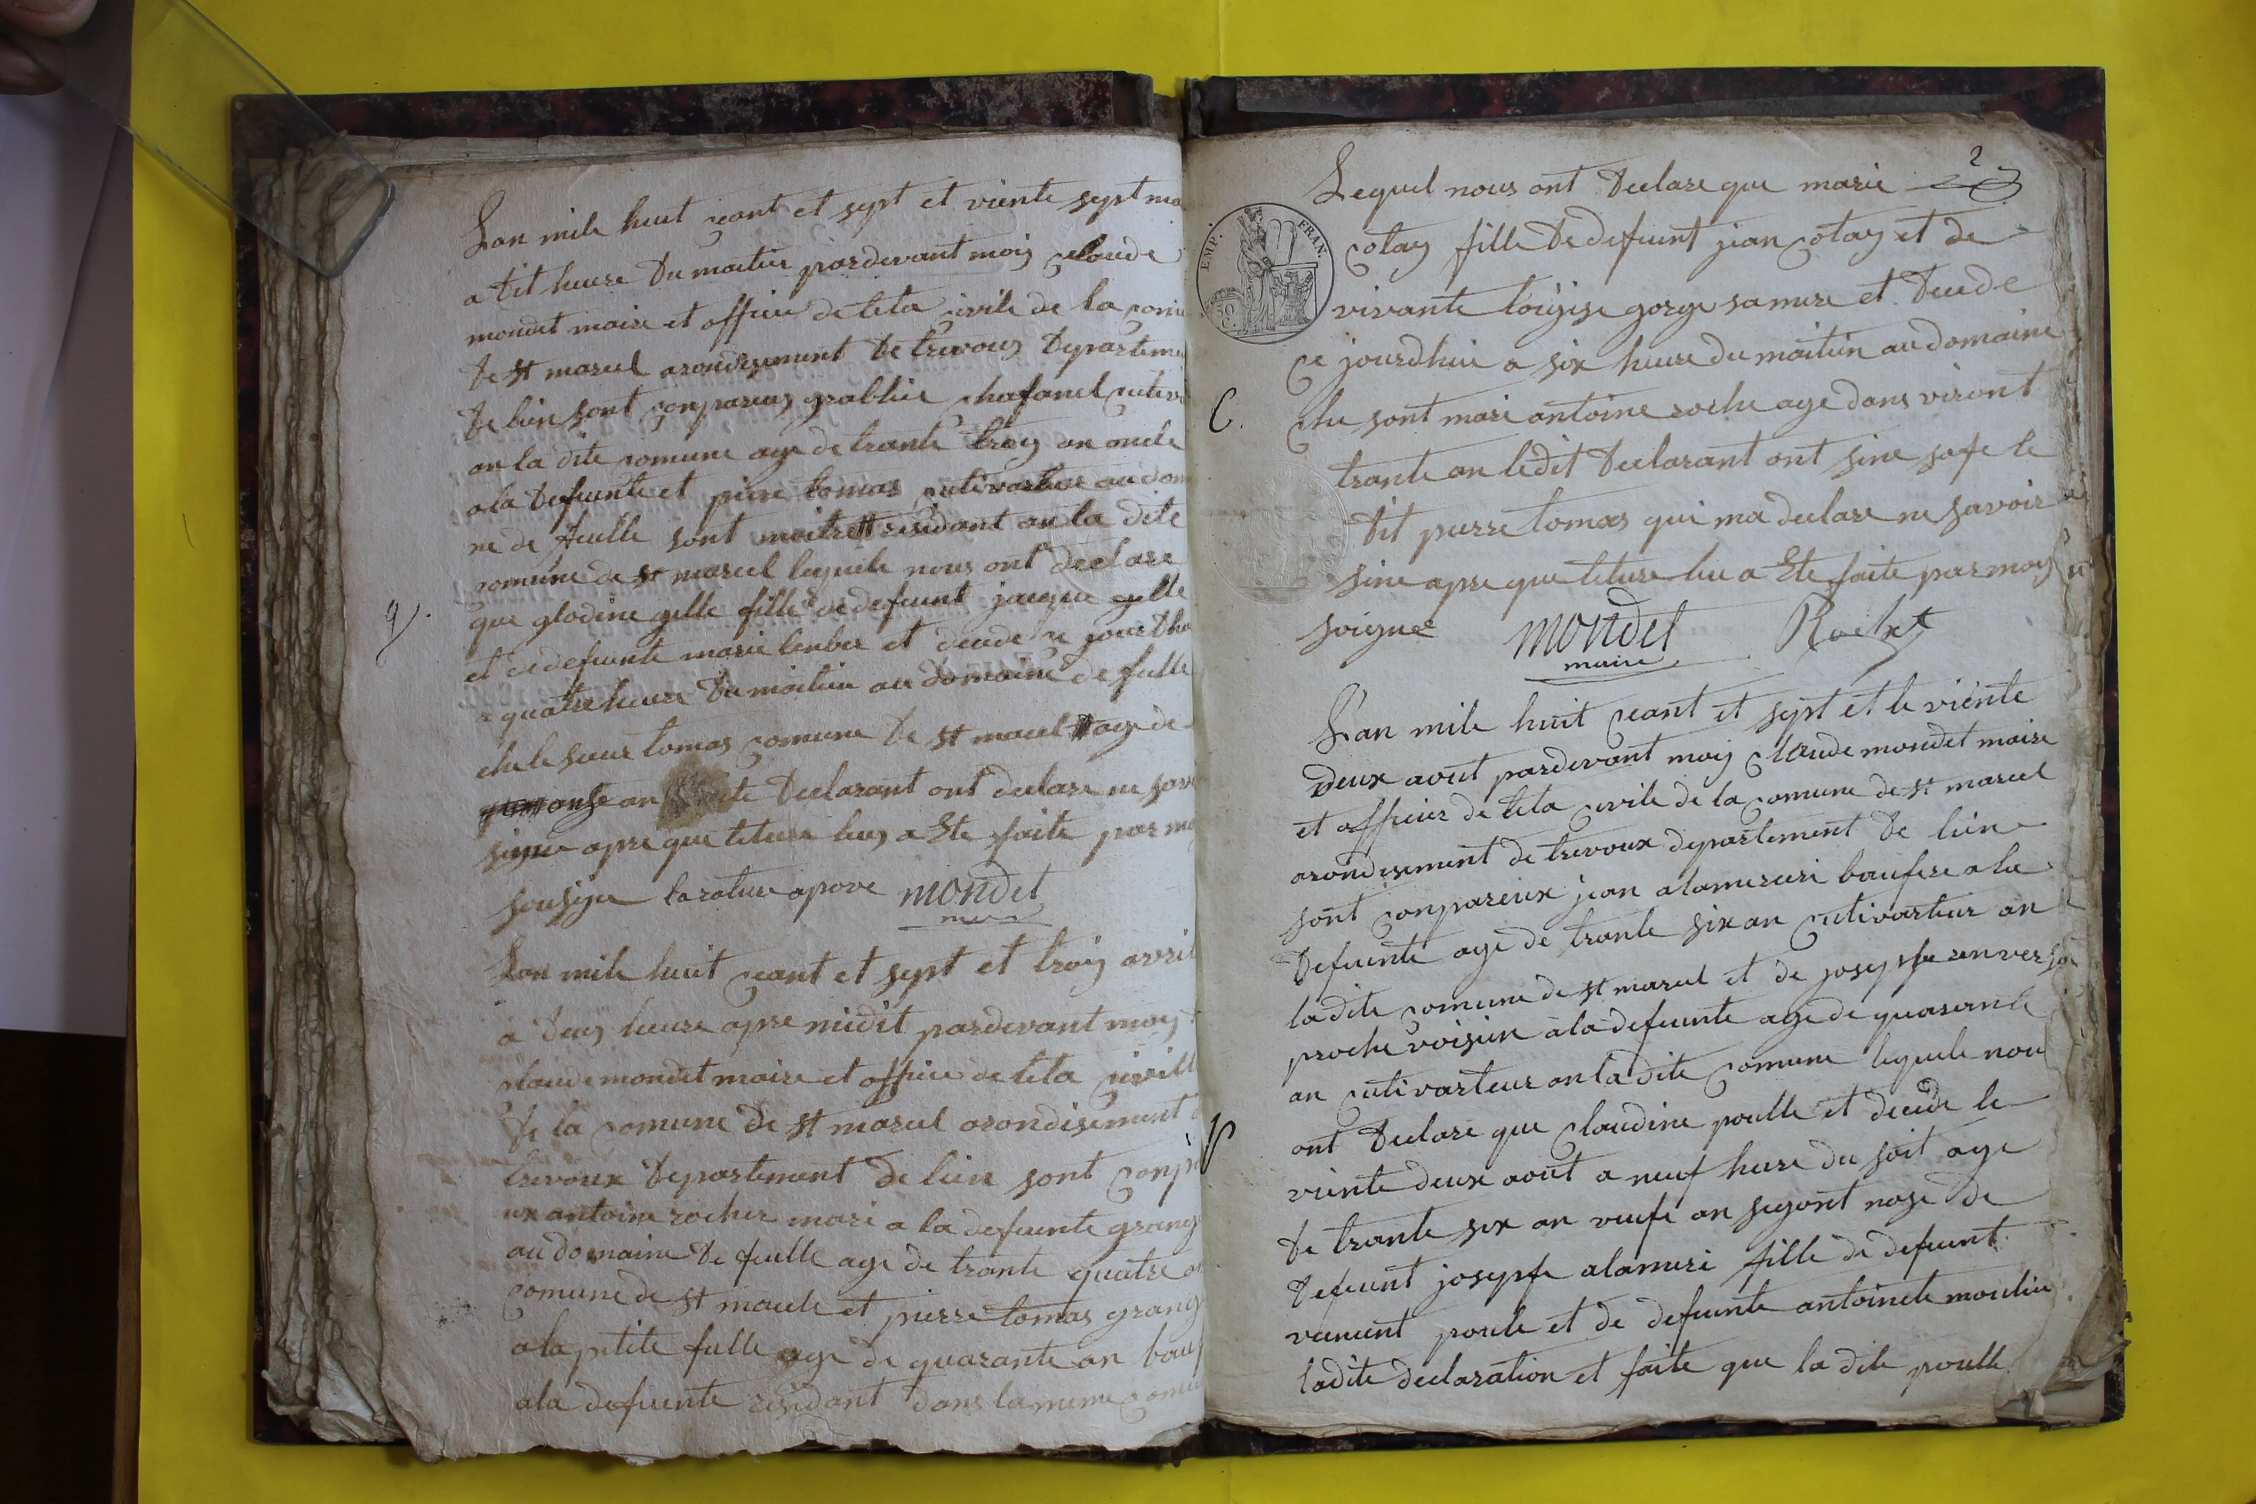 Lan mile huit ceant et sept et viente sept ma
a dit heure du maitin pardevant moij claude
mondet maire et officie de leta civile de la comu
de st marcel arondisement de trevoux departeme
de lien sont conpareus grablie chafanel cutiv
an la dite comune age de trante troij an oncle
a la defeunte et piere tomas cutivarteur au dom
ne de feulle sont maitre residant an la dite
comune de st marcel lequele nous ont declare
que glodine gelle fille de defeunt jacque gelle
et de defeunte marie et decede ce jourdhu
a quatre heure du maitin au domaine de fulle
che le sieur tomas comune de st marcel age de
onse an declarant ont declare ne sav
signe apre que leture leuy a Ete faite par mo
sousigne la rature aprove mondet
maire
Lan mile huit ceant et sept et troij avril
a deuy heure apre midit pardevant moij
claude mondet maire et officie de leta civill
de la comune de st marcel arondisement d
trevoux departement de lien sont conpa
ux antoine rocher mari a la defeunte grang
au domaine de feulle age de trante quatre an
comune de st marcele et pierre tomas grang
a la petite fulle age de quarante an bauf
a la defeunte residant dans la meme comu
9).
2
Lequel nous ont declare que marie
colay fille de defeunt jean colay et de
vivante loigise gorge sa mere et decede
ce jourdhui a six heure du maitin au domaine
EMP. FRAN.
C.
che sont mari antoine roche age danviront
trante an ledit declarant ont sine sofe le
dit pierre tomas qui ma declare ne savoir
sine apre que leture leu a Ete faite par moij
soigne mondet Rochet
maire
Lan mile huit ceant et sept et le viente
deux aout pardevant moij claude mondet maire
et officier de leta civile de la comune de st marcel
arondisement de trevoux departement de lien
sont conpareux jean alamerceri baufere a la
defeunte age de trante six an cutivarteur an
la dite comune de st marcel et de josepfe renversa
proche voisin a la defeunte age de quaserante
an cutivarteur an la dite comune lequele nou
ont declare que claudine poulle et decede le
viente deux aout a neuf heure du soit age
de trante six an veufe an segont nose de
defeunt josepfe alameri fille de defeunt
veincent poule et de defeunte antoinete moulin
ladite declaration et faite que la dite poulle